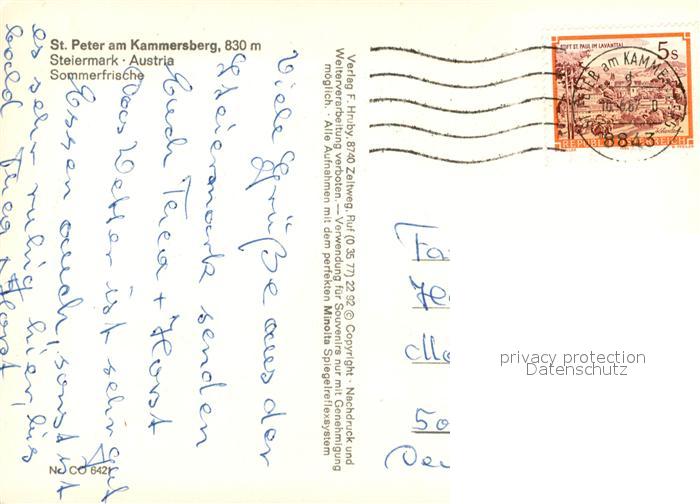 St. Peter am Kammersberg, 830 m
Steiermark · Austria
Sommerfrische
Viele Grüße aus der
Steiermark senden
Euch Thea + Horst
Das Wetter ist sehr gut
Essen auch, sonst ist
es sehr ruhig hier, bis
bald Thea + Horst
No CO 6421
Verlag F. Hruby, 8740 Zeltweg, Ruf (0 35 77) 22 92 © Copyright · Nachdruck und
Weiterverarbeitung verboten. — Verwendung für Souvenirs nur mit Genehmigung
möglich. · Alle Aufnahmen mit dem perfekten Minolta Spiegelreflexsystem
STIFT ST. PAUL IM LAVANTTAL
5s
REPUBLIK ÖSTERREICH
ST. PETER am KAMMERSBERG
8843
Fa
He
Mo
50
privacy protection
Datenschutz